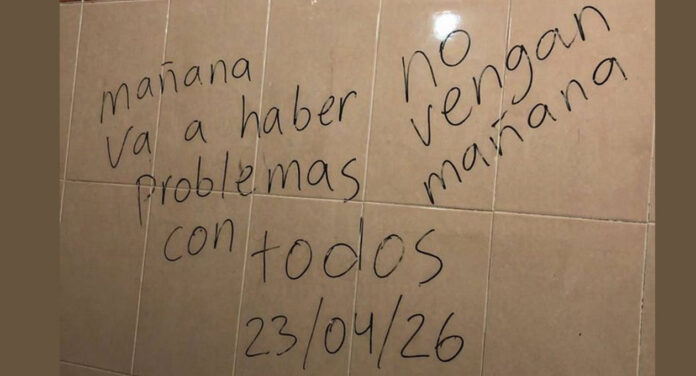 mañana
va a haber
problemas
con todos
23/04/26
no
vengan
mañana